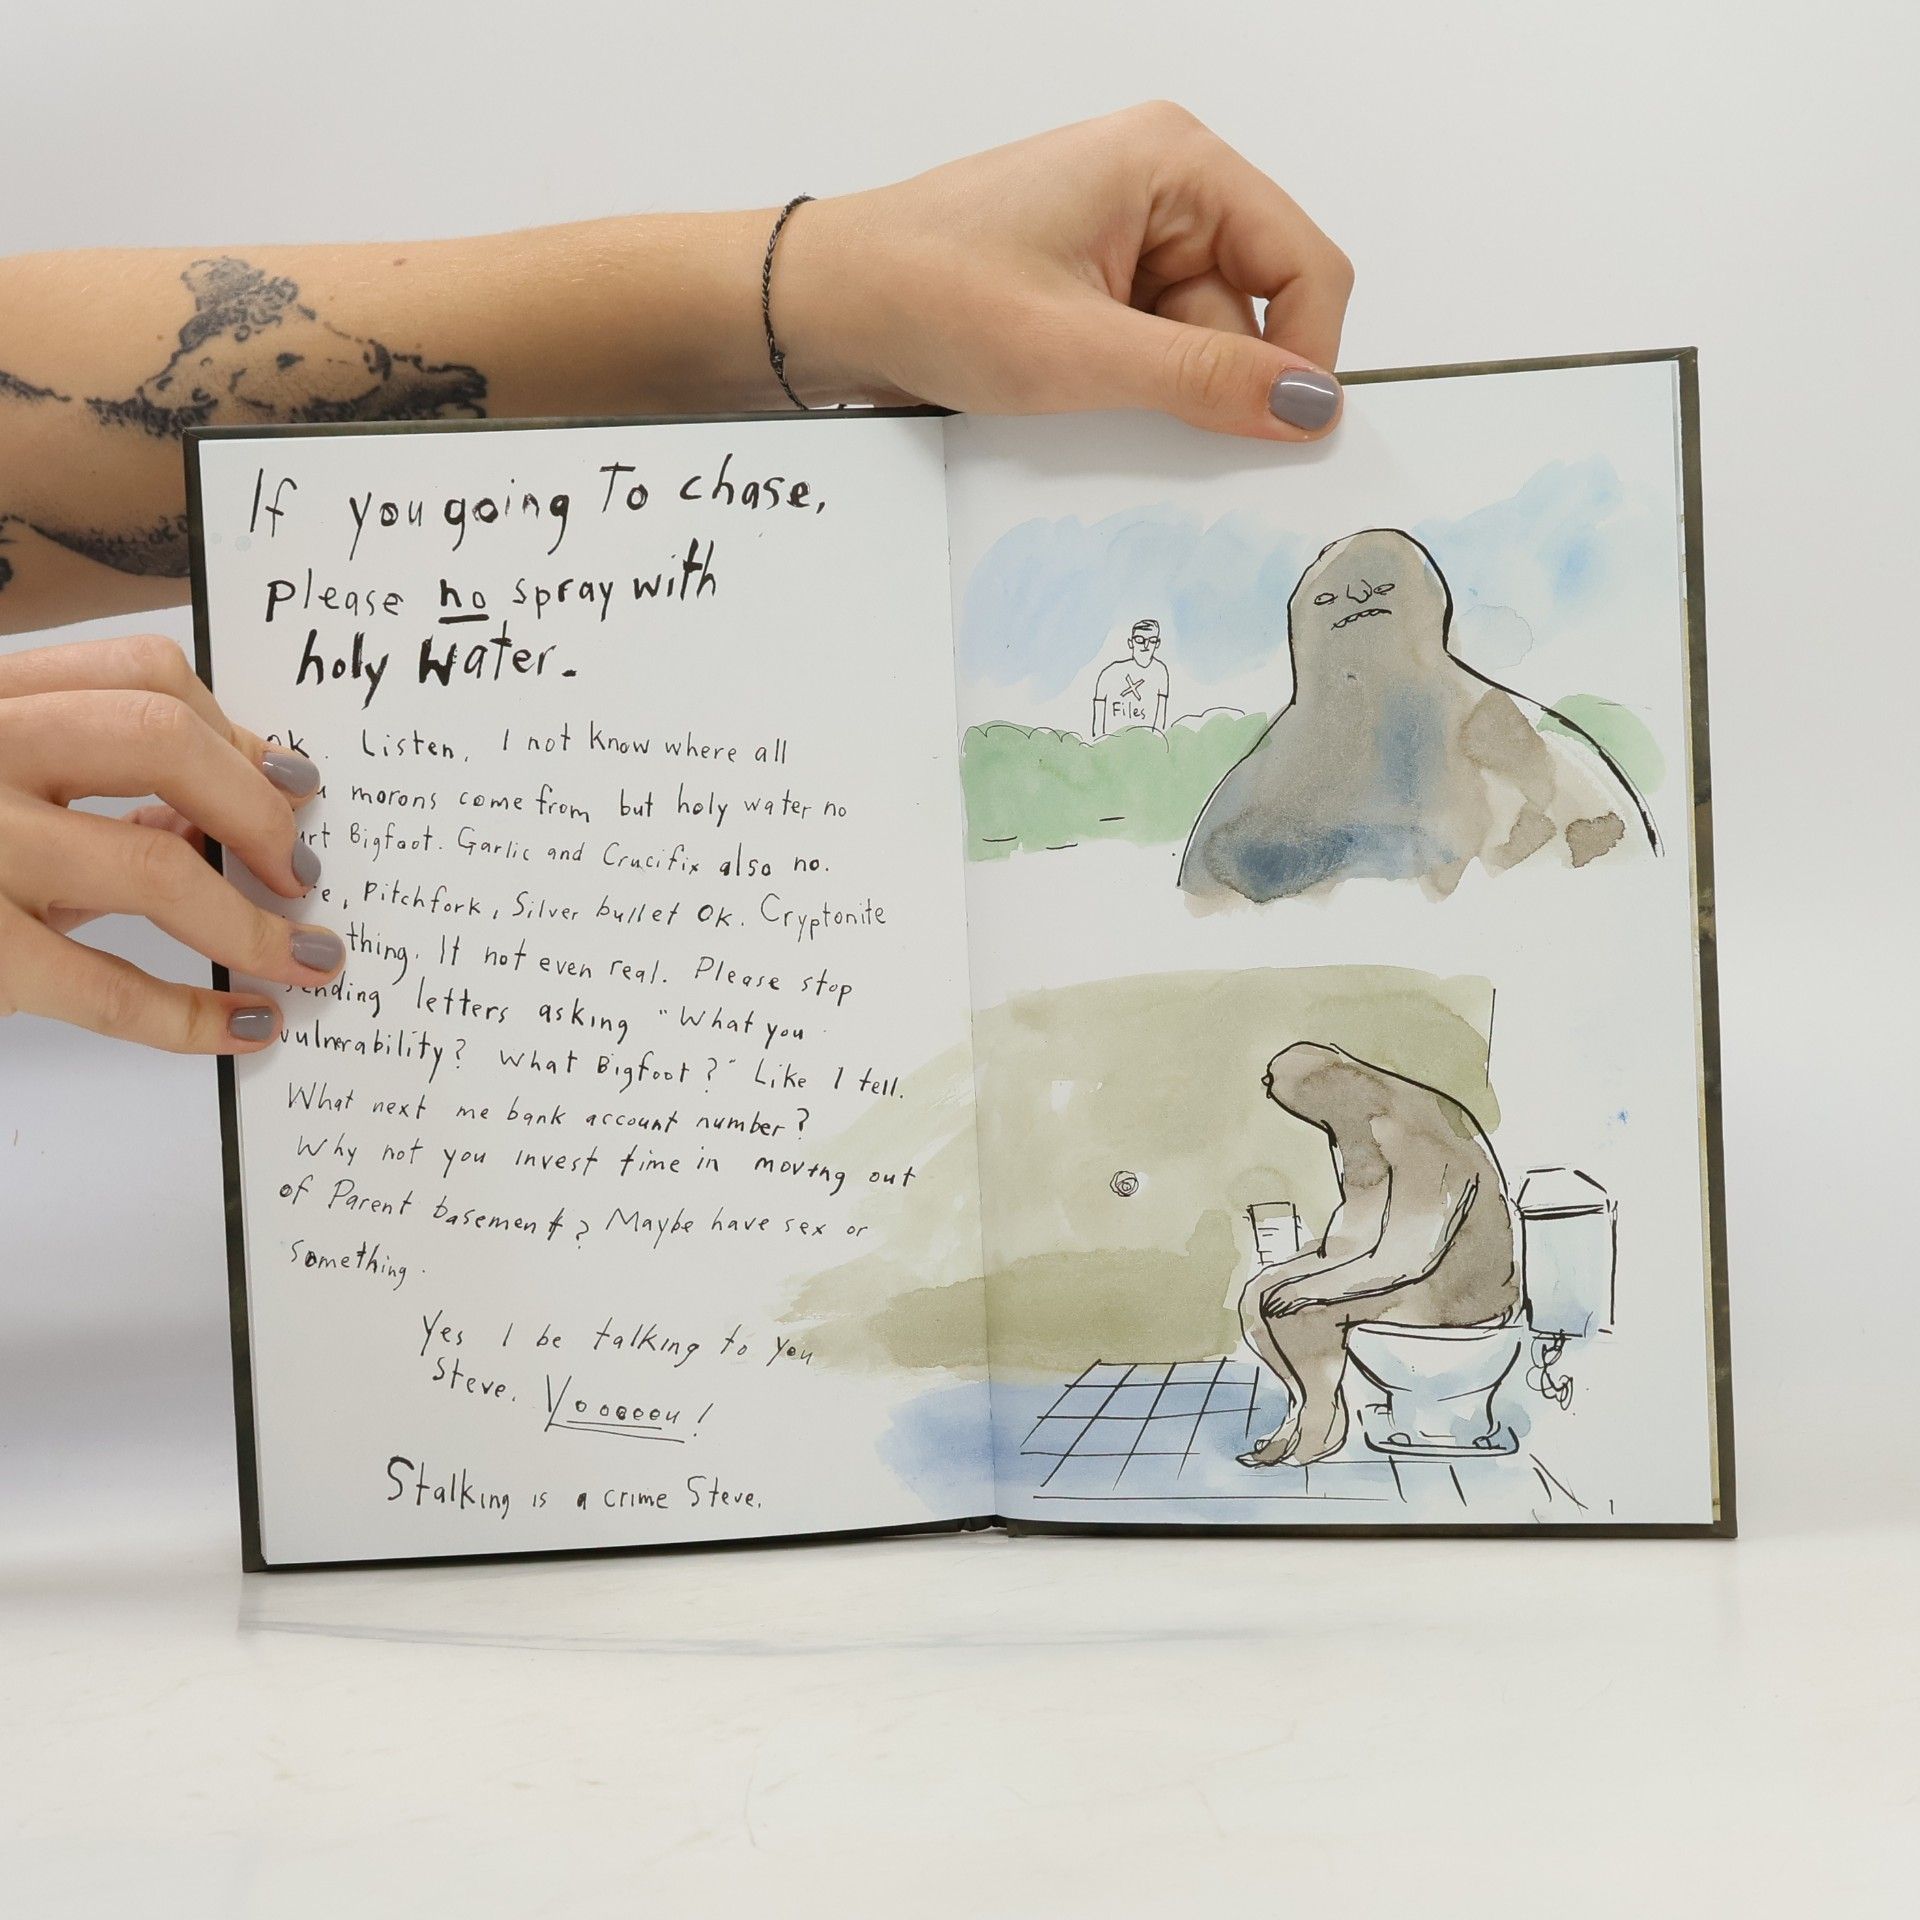 If you going To chase,
please no spray with
holy water.
OK. Listen. I not know where all
morons come from but holy water no
Bigfoot. Garlic and Crucifix also no.
, Pitchfork, Silver bullet OK. Cryptonite
thing. It not even real. Please stop
sending letters asking "What you
vulnerability? What Bigfoot?" Like I tell.
What next me bank account number?
Why not you invest time in moving out
of Parent basement? Maybe have sex or
something.
Yes I be talking to you
Steve. Yooooou!
Stalking is a crime Steve.
X
Files